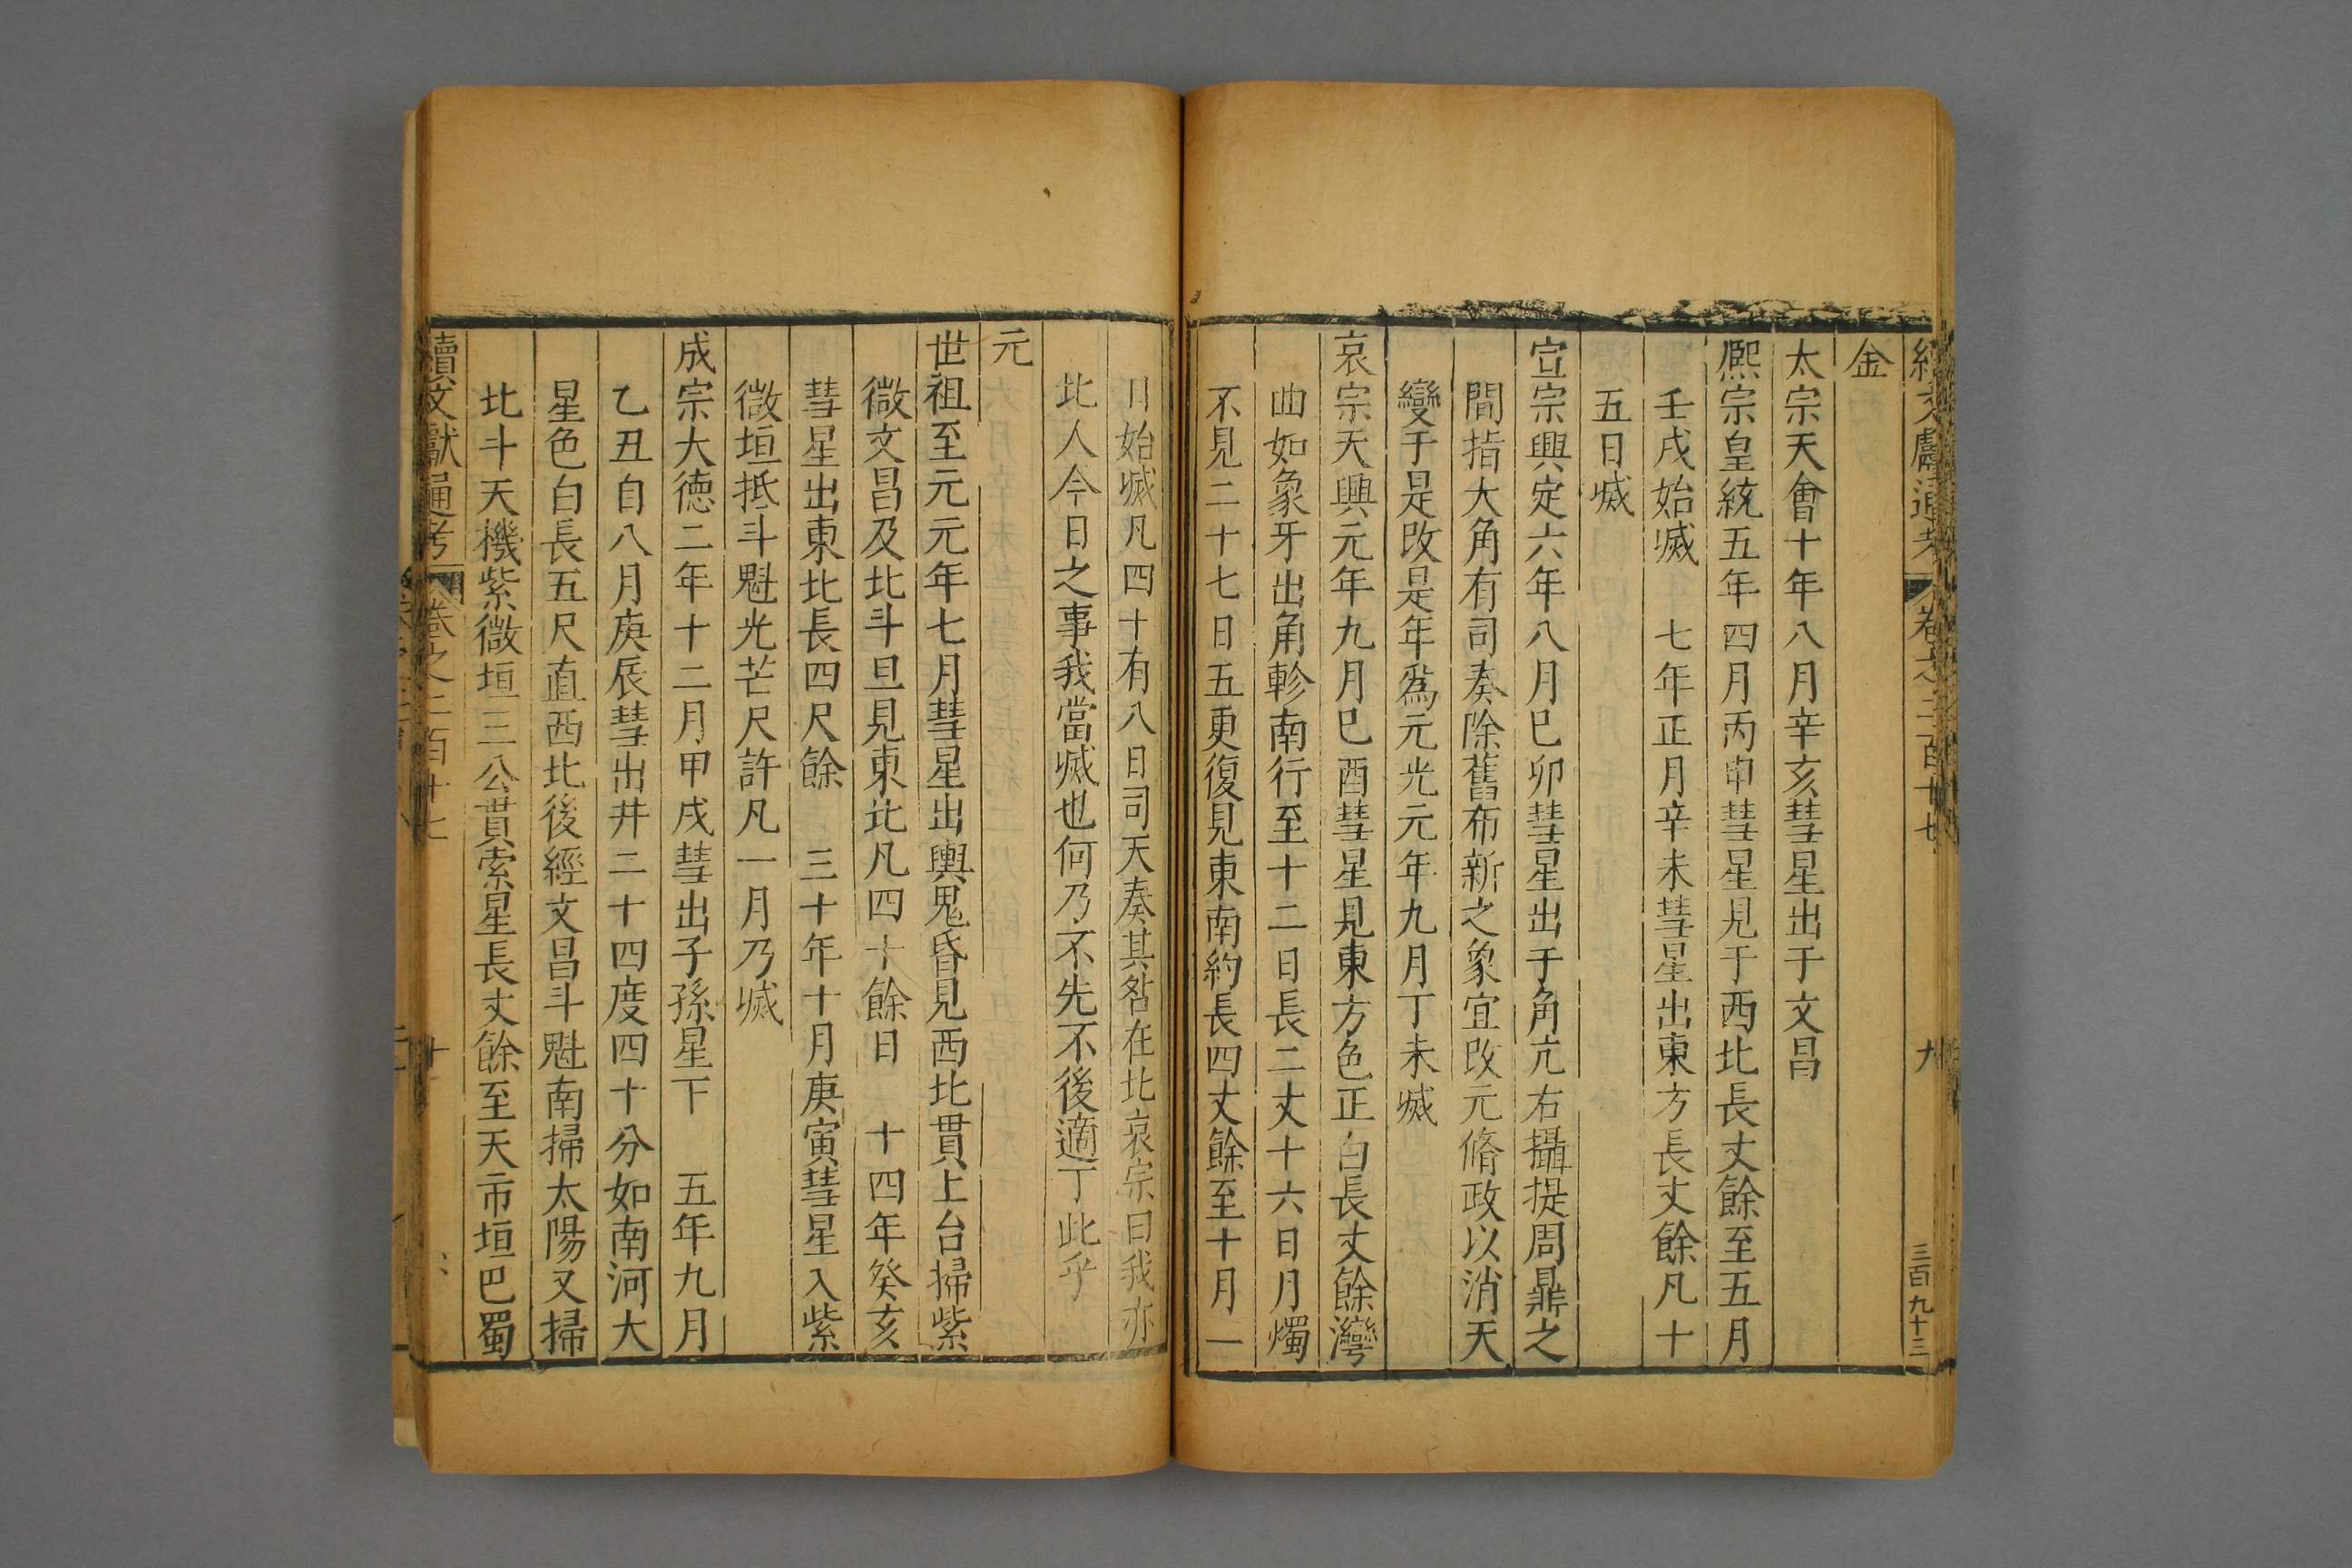 續文獻通考 卷之二百十七 九 三百九十三
金
太宗天會十年八月辛亥彗星出于文昌
熈宗皇統五年四月丙申彗星見于西北長丈餘至五月
壬戌始烕 七年正月辛未彗星出東方長丈餘凡十
五日烕
宣宗興定六年八月巳卯彗星出于角亢右攝提周鼎之
間指大角有司奏除舊布新之象宜改元脩政以消天
變于是改是年爲元光元年九月丁未烕
哀宗天興元年九月巳酉彗星見東方色正白長丈餘灣
曲如象牙出角軫南行至十二日長二丈十六日月燭
不見二十七日五更復見東南約長四丈餘至十月一
日始烕凡四十有八日司天奏其咎在北哀宗曰我亦
北人今日之事我當烕也何乃不先不後適丁此乎
元
世祖至元元年七月彗星出輿鬼昏見西北貫上台掃紫
微文昌及北斗旦見東北凡四十餘日 十四年癸亥
彗星出東北長四尺餘 三十年十月庚寅彗星入紫
微垣抵斗魁光芒尺許凡一月乃烕
成宗大德二年十二月甲戌彗出子孫星下 五年九月
乙丑自八月庚辰彗出井二十四度四十分如南河大
星色白長五尺直西北後經文昌斗魁南掃太陽又掃
北斗天機紫微垣三公貫索星長丈餘至天市垣巴蜀
續文獻通考 卷之二百十七 十